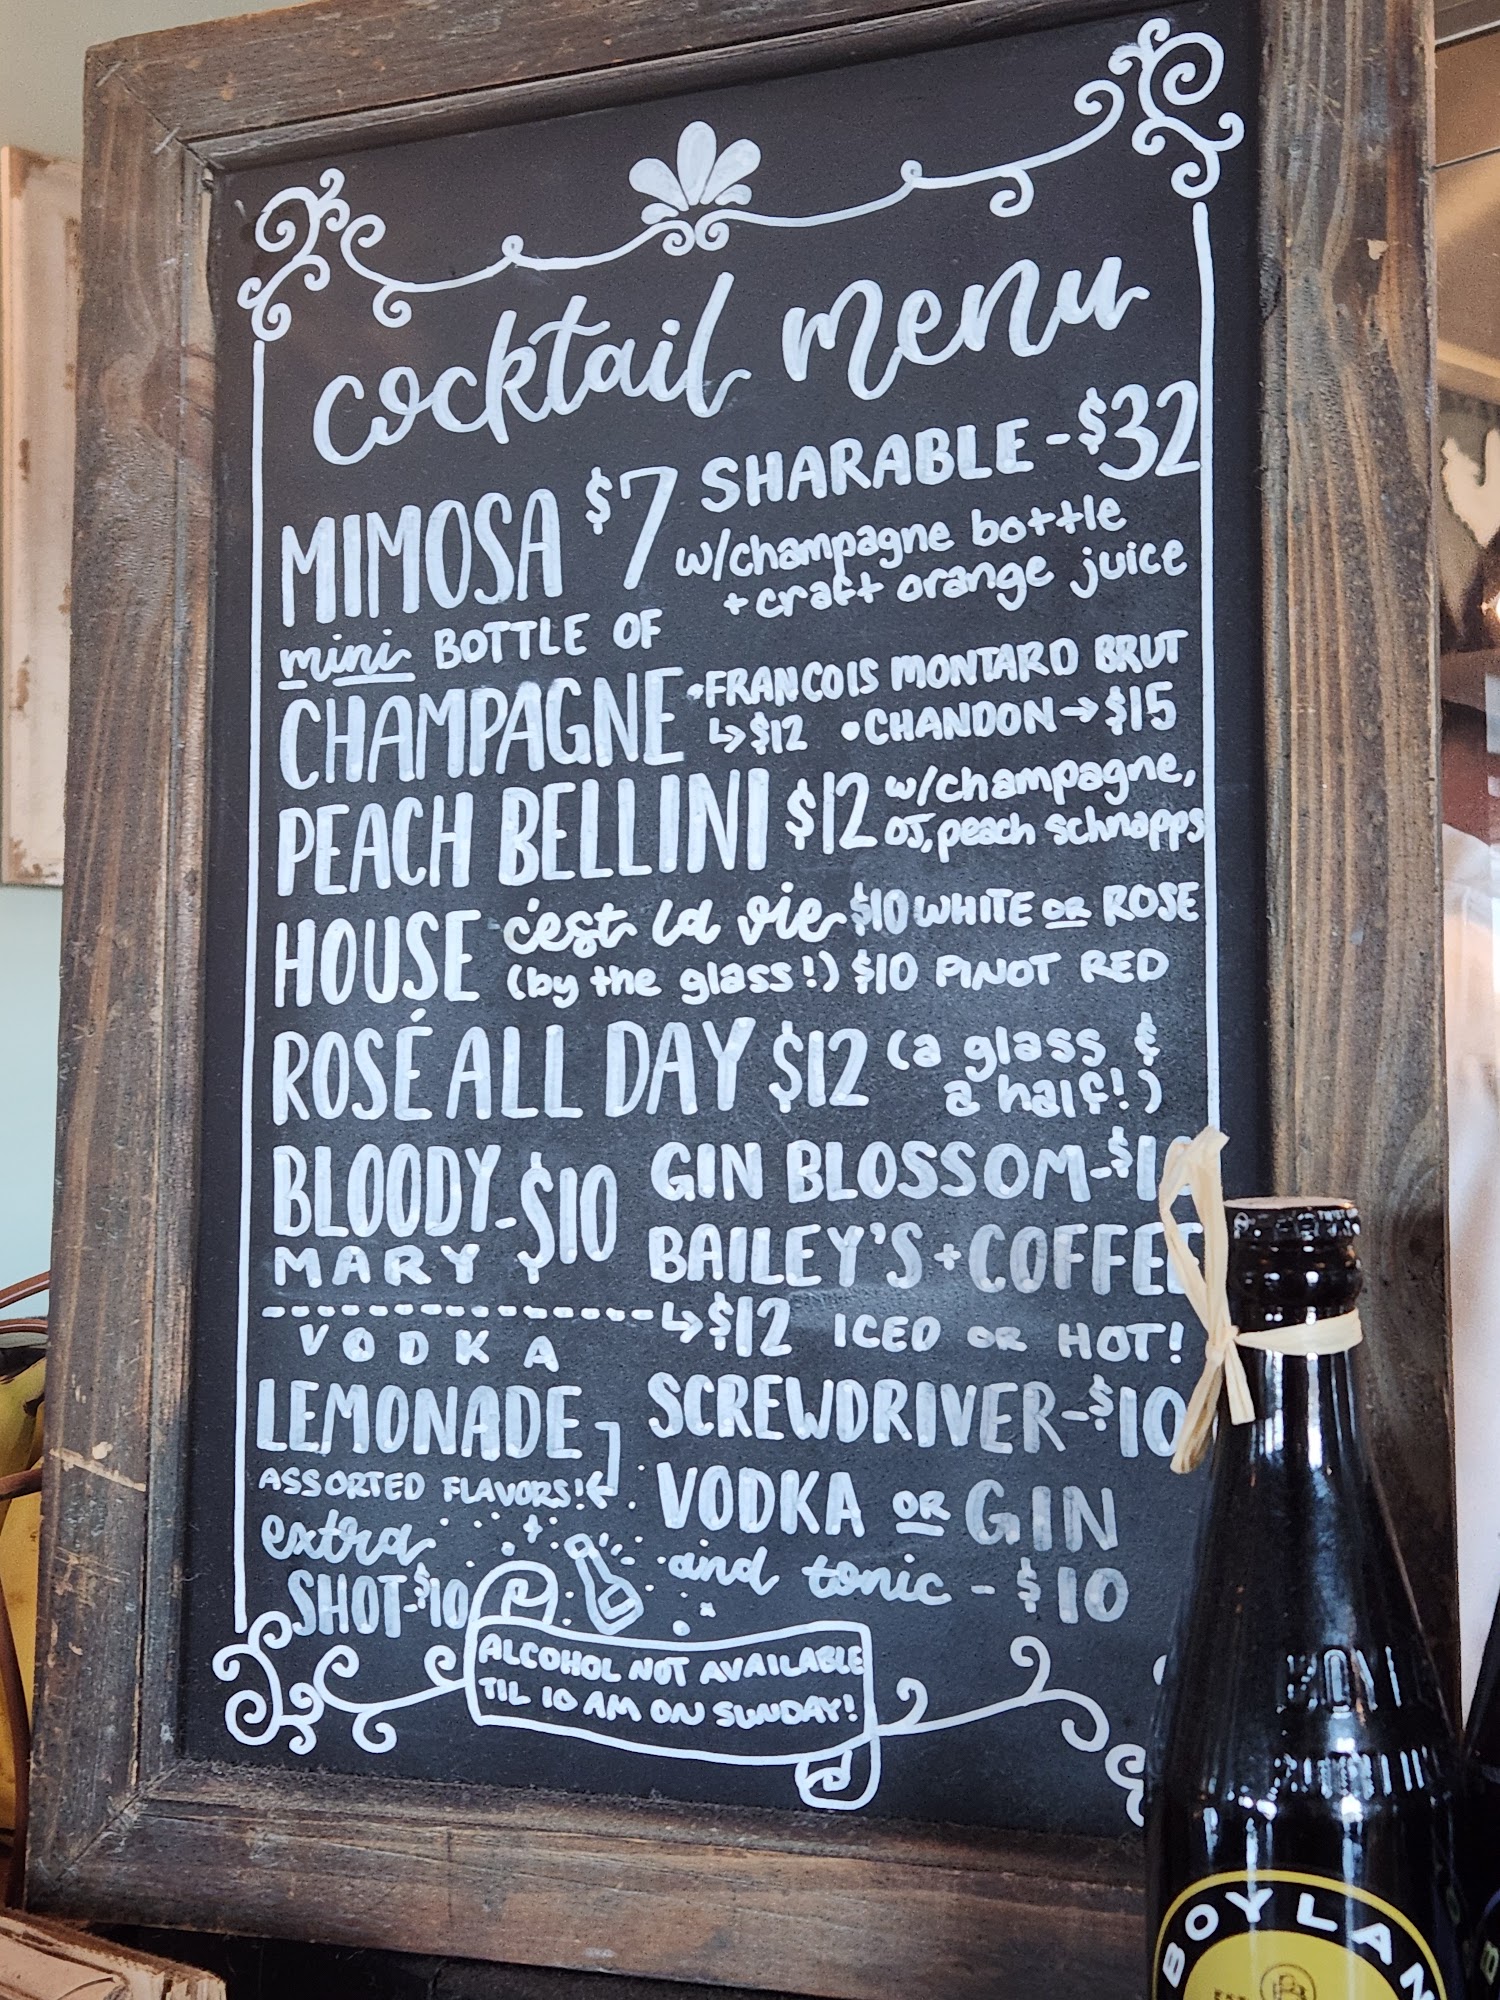 cocktail menu
MIMOSA $7 SHARABLE - $32
w/champagne bottle
+ craft orange juice
mini BOTTLE OF
CHAMPAGNE • FRANCOIS MONTARD BRUT
↳ $12 • CHANDON → $15
PEACH BELLINI $12 w/champagne,
OJ, peach schnapps
HOUSE c'est la vie $10 WHITE OR ROSE
(by the glass!) $10 PINOT RED
ROSÉ ALL DAY $12 (a glass &
a half!)
BLOODY
MARY - $10
GIN BLOSSOM - $10
BAILEY'S + COFFEE
↳ $12 ICED OR HOT!
VODKA
LEMONADE
ASSORTED FLAVORS!
SCREWDRIVER - $10
extra
SHOT - $10
VODKA OR GIN
and tonic - $10
ALCOHOL NOT AVAILABLE
TIL 10 AM ON SUNDAY!
BOYLAN